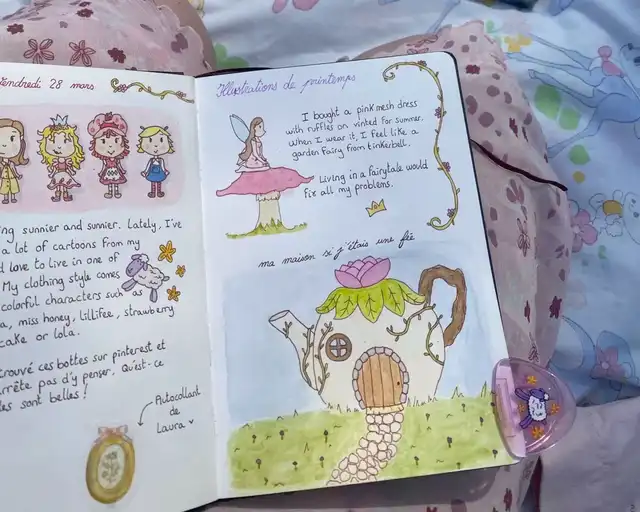 Vendredi 28 mars
ing sunnier and sunnier. Lately, I've
a lot of cartoons from my
d love to live in one of
My clothing style comes
colorful characters such as
a, miss honey, lillifee, strawberry
cake or lola.
trouvé ces bottes sur pinterest et
arrête pas d'y penser. Qu'est-ce
les sont belles !
Autocollant
de
Laura
Illustrations de printemps
I bought a pink mesh dress
with ruffles on vinted for summer.
When I wear it, I feel like a
garden fairy from tinkerbell.
Living in a fairytale would
fix all my problems.
ma maison si j'étais une fée